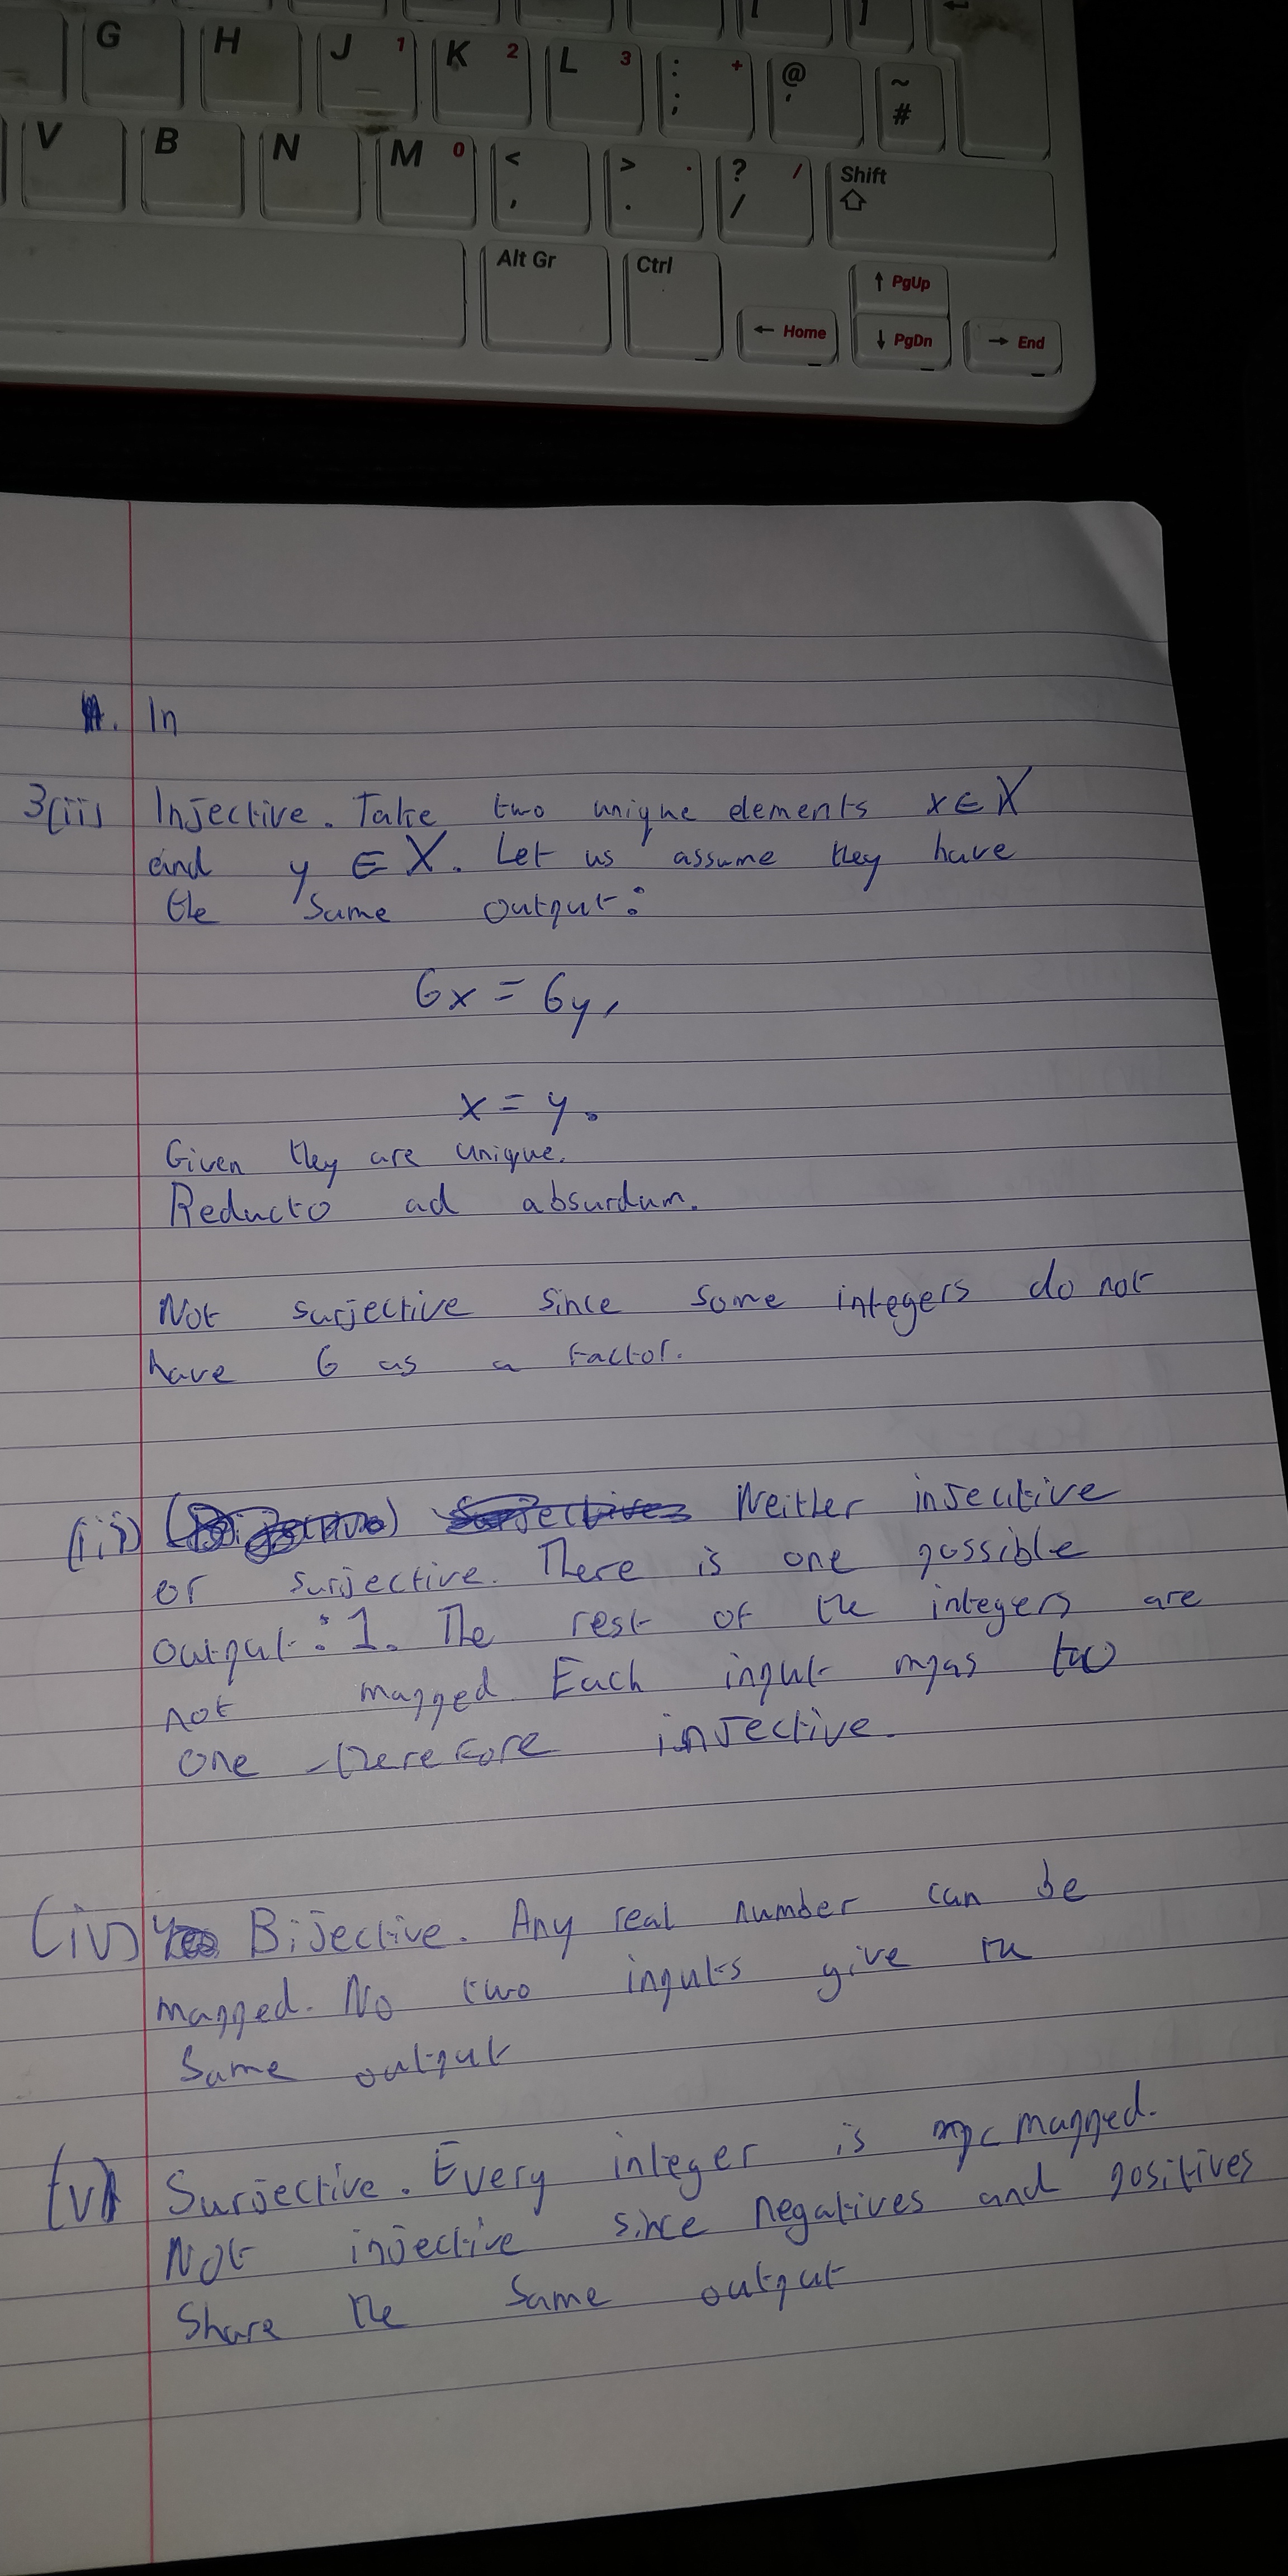 G H J 1 K 2 L 3 : ; + @ ' ~ #
V B N M 0 < , > . . ? / / Shift
Alt Gr Ctrl ↑ PgUp
← Home ↓ PgDn → End
In
3(ii) Injective. Take two unique elements x ∈ X
and y ∈ X. Let us assume they have
the same output:
6x = 6y,
x = y.
Given they are unique.
Reducto ad absurdum.
Not surjective since some integers do not
have 6 as a factor.
(iii) Neither injecitive
or surjective. There is one possible
output: 1. The rest of the integers are
not mapped. Each input mpas to
one therefore injective.
(iv) Yes Bijective. Any real number can be
mapped. No two inputs give the
same output
(v) Surjective. Every integer is mapped.
Not injective since negatives and positives
share the same output